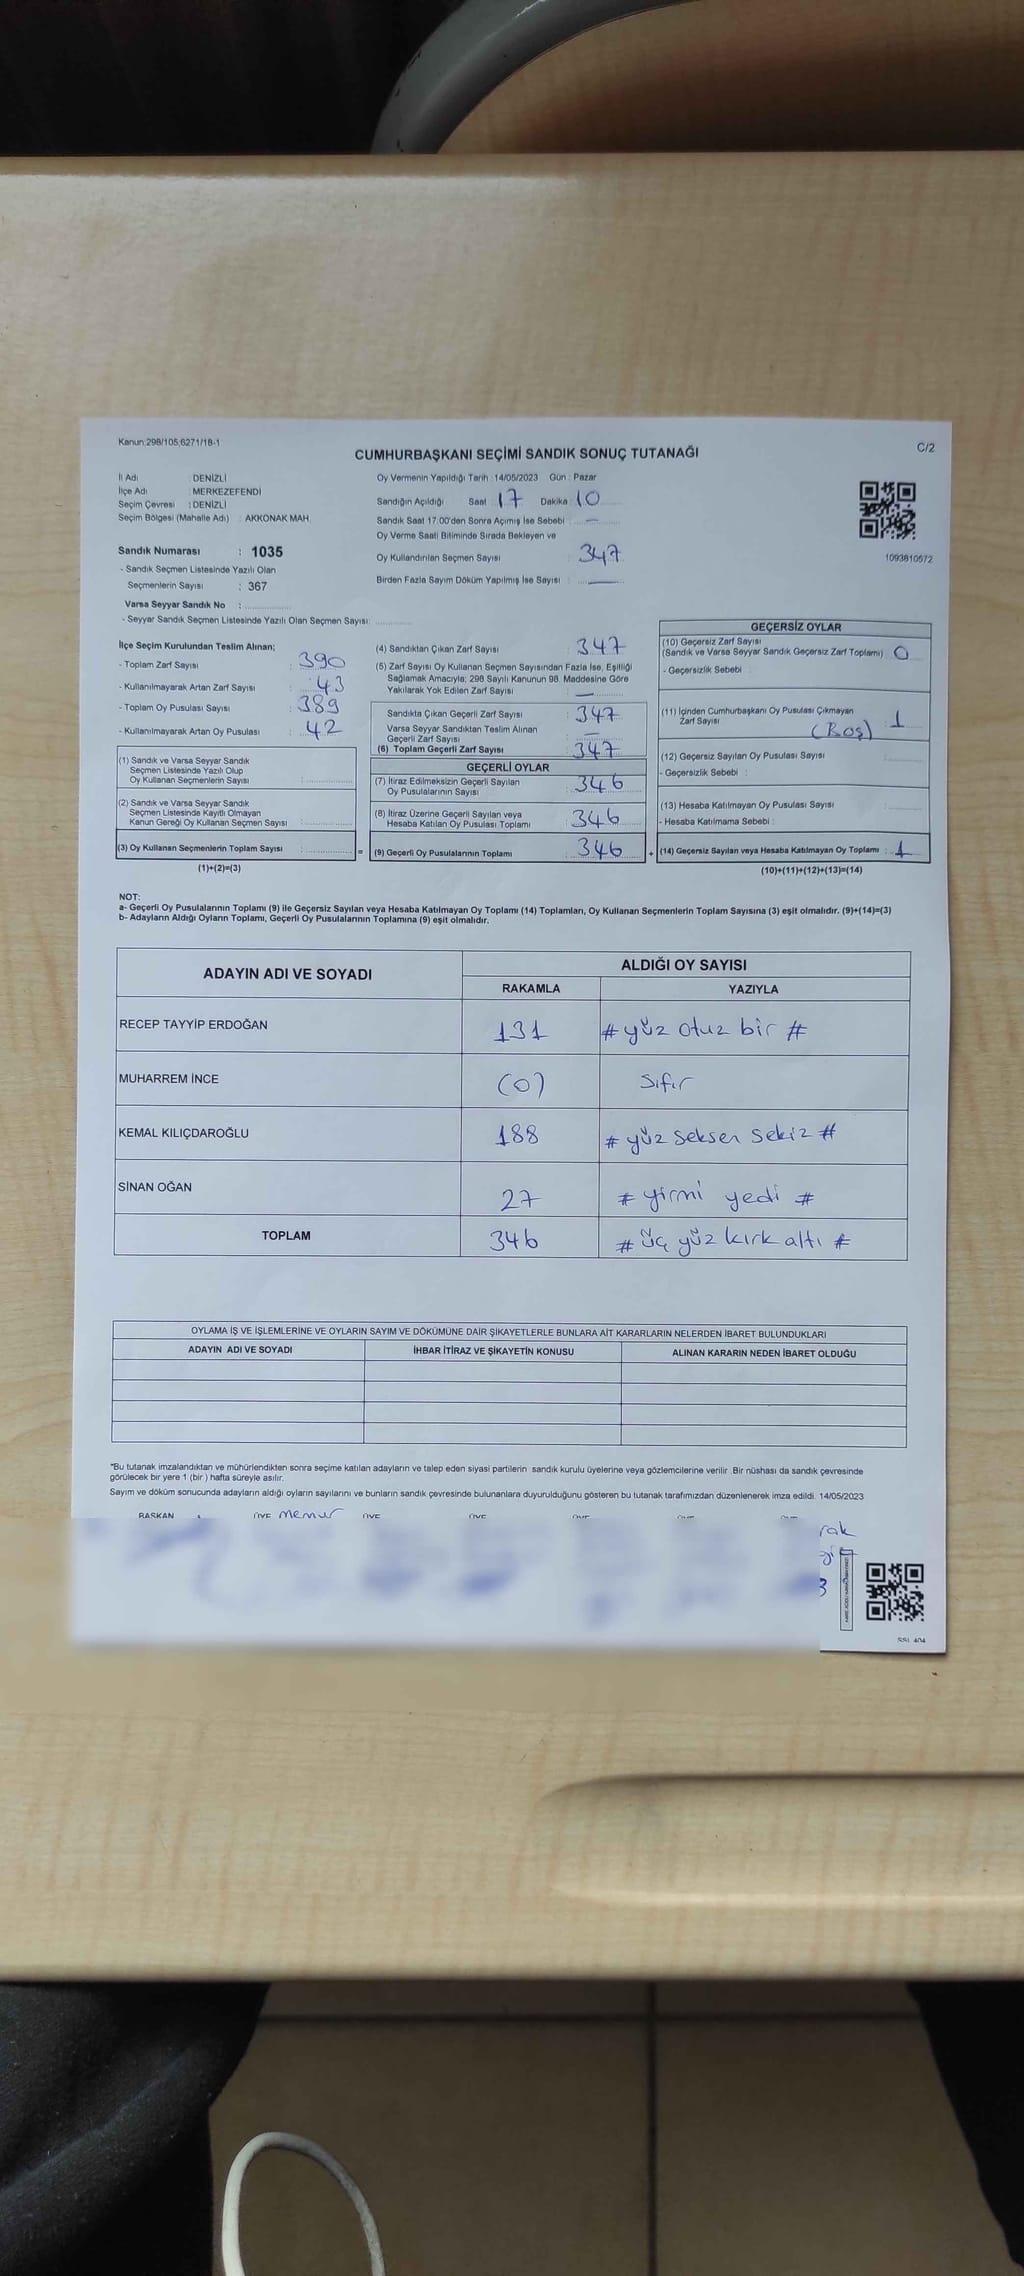 Kanun:298/105;6271/18-1
C/2
CUMHURBAŞKANI SEÇİMİ SANDIK SONUÇ TUTANAĞI
İl Adı : DENİZLİ
İlçe Adı : MERKEZEFENDİ
Seçim Çevresi : DENİZLİ
Seçim Bölgesi (Mahalle Adı) : AKKONAK MAH.
Sandık Numarası : 1035
- Sandık Seçmen Listesinde Yazılı Olan
Seçmenlerin Sayısı : 367
Varsa Seyyar Sandık No :
- Seyyar Sandık Seçmen Listesinde Yazılı Olan Seçmen Sayısı:
Oy Vermenin Yapıldığı Tarih : 14/05/2023 Gün : Pazar
Sandığın Açıldığı Saat 17 Dakika 10
Sandık Saat 17.00'den Sonra Açımış İse Sebebi : —
Oy Verme Saati Bitiminde Sırada Bekleyen ve
Oy Kullandırılan Seçmen Sayısı : 347
Birden Fazla Sayım Döküm Yapılmış İse Sayısı : —
1093810672
İlçe Seçim Kurulundan Teslim Alınan;
- Toplam Zarf Sayısı : 390
- Kullanılmayarak Artan Zarf Sayısı : 43
- Toplam Oy Pusulası Sayısı : 389
- Kullanılmayarak Artan Oy Pusulası : 42
(1) Sandık ve Varsa Seyyar Sandık
Seçmen Listesinde Yazılı Olup
Oy Kullanan Seçmenlerin Sayısı :
(2) Sandık ve Varsa Seyyar Sandık
Seçmen Listesinde Kayıtlı Olmayan
Kanun Gereği Oy Kullanan Seçmen Sayısı :
(3) Oy Kullanan Seçmenlerin Toplam Sayısı :
(1)+(2)=(3)
(4) Sandıktan Çıkan Zarf Sayısı : 347
(5) Zarf Sayısı Oy Kullanan Seçmen Sayısından Fazla İse, Eşitliği
Sağlamak Amacıyla; 298 Sayılı Kanunun 98. Maddesine Göre
Yakılarak Yok Edilen Zarf Sayısı : —
Sandıkta Çıkan Geçerli Zarf Sayısı : 347
Varsa Seyyar Sandıktan Teslim Alınan
Geçerli Zarf Sayısı : —
(6) Toplam Geçerli Zarf Sayısı : 347
GEÇERLİ OYLAR
(7) İtiraz Edilmeksizin Geçerli Sayılan
Oy Pusulalarının Sayısı : 346
(8) İtiraz Üzerine Geçerli Sayılan veya
Hesaba Katılan Oy Pusulası Toplamı : 346
= (9) Geçerli Oy Pusulalarının Toplamı : 346
GEÇERSİZ OYLAR
(10) Geçersiz Zarf Sayısı
(Sandık ve Varsa Seyyar Sandık Geçersiz Zarf Toplamı) : 0
- Geçersizlik Sebebi :
(11) İçinden Cumhurbaşkanı Oy Pusulası Çıkmayan
Zarf Sayısı : 1
(Boş)
(12) Geçersiz Sayılan Oy Pusulası Sayısı :
- Geçersizlik Sebebi :
(13) Hesaba Katılmayan Oy Pusulası Sayısı :
- Hesaba Katılmama Sebebi :
+ (14) Geçersiz Sayılan veya Hesaba Katılmayan Oy Toplamı : 1
(10)+(11)+(12)+(13)=(14)
NOT:
a- Geçerli Oy Pusulalarının Toplamı (9) ile Geçersiz Sayılan veya Hesaba Katılmayan Oy Toplamı (14) Toplamları, Oy Kullanan Seçmenlerin Toplam Sayısına (3) eşit olmalıdır. (9)+(14)=(3)
b- Adayların Aldığı Oyların Toplamı, Geçerli Oy Pusulalarının Toplamına (9) eşit olmalıdır.
ADAYIN ADI VE SOYADI ALDIĞI OY SAYISI
RAKAMLA YAZIYLA
RECEP TAYYİP ERDOĞAN 131 # yüz otuz bir #
MUHARREM İNCE (0) sıfır
KEMAL KILIÇDAROĞLU 188 # yüz seksen sekiz #
SİNAN OĞAN 27 # yirmi yedi #
TOPLAM 346 # üç yüz kırk altı #
OYLAMA İŞ VE İŞLEMLERİNE VE OYLARIN SAYIM VE DÖKÜMÜNE DAİR ŞİKAYETLERLE BUNLARA AİT KARARLARIN NELERDEN İBARET BULUNDUKLARI
ADAYIN ADI VE SOYADI İHBAR İTİRAZ VE ŞİKAYETİN KONUSU ALINAN KARARIN NEDEN İBARET OLDUĞU
*Bu tutanak imzalandıktan ve mühürlendikten sonra seçime katılan adayların ve talep eden siyasi partilerin sandık kurulu üyelerine veya gözlemcilerine verilir. Bir nüshası da sandık çevresinde
görülecek bir yere 1 (bir ) hafta süreyle asılır.
Sayım ve döküm sonucunda adayların aldığı oyların sayılarını ve bunların sandık çevresinde bulunanlara duyurulduğunu gösteren bu tutanak tarafımızdan düzenlenerek imza edildi. 14/05/2023
BAŞKAN ÜYE memur ÜYE ÜYE ÜYE ÜYE ÜYE
rak
3
SSL 404